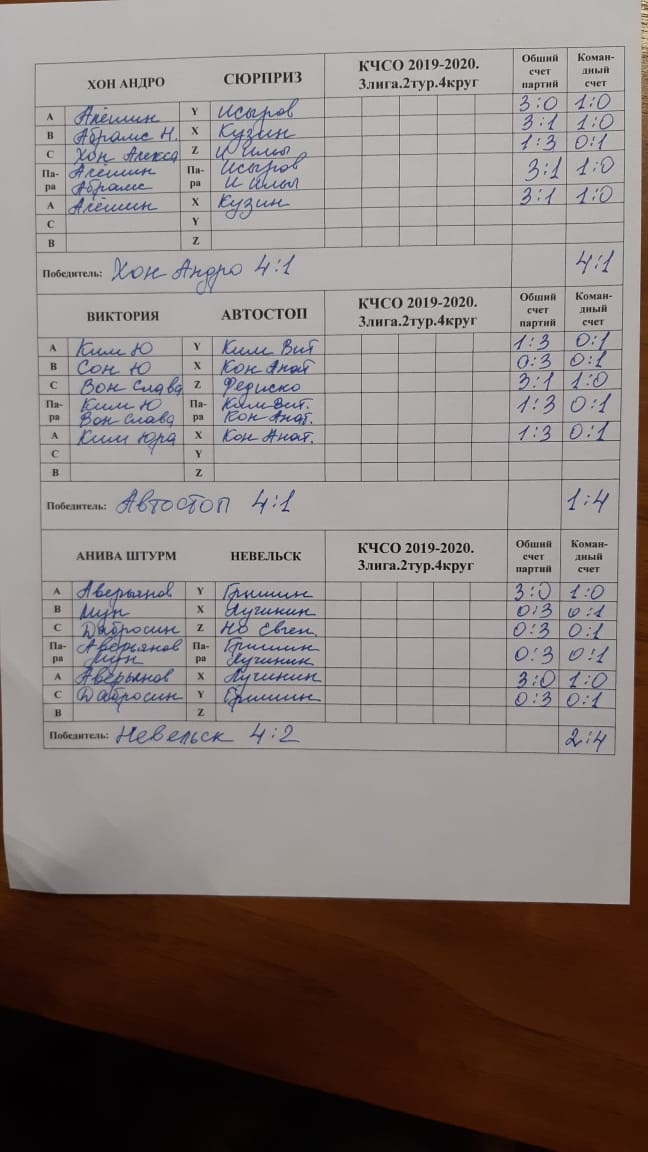 ХОН АНДРО СЮРПРИЗ КЧСО 2019-2020. 3лига.2тур.4круг Общий счет партий Коман-дный счет
А Алёшин Y Исыров 3:0 1:0
В Абрамс Н. X Кузин 3:1 1:0
С Хон Алекса Z 1:3 0:1
Па-ра Алёшин Абрамс Па-ра Исыров 3:1 1:0
А Алёшин X Кузин 3:1 1:0
С Y
В Z
Победитель: Хон Андро 4:1 4:1
ВИКТОРИЯ АВТОСТОП КЧСО 2019-2020. 3лига.2тур.4круг Общий счет партий Коман-дный счет
А Ким Ю Y Ким Вит 1:3 0:1
В Сон Ю X Кон Анат 0:3 0:1
С Вон Слава Z Федиско 3:1 1:0
Па-ра Ким Ю Вон Слава Па-ра Ким Вит. Кон Анат. 1:3 0:1
А Ким Юра X Кон Анат. 1:3 0:1
С Y
В Z
Победитель: Автостоп 4:1 1:4
АНИВА ШТУРМ НЕВЕЛЬСК КЧСО 2019-2020. 3лига.2тур.4круг Общий счет партий Коман-дный счет
А Аверьянов Y Гришин 3:0 1:0
В Мун X Лучинин 0:3 0:1
С Дабросин Z Но Евген. 0:3 0:1
Па-ра Аверьянов Мун Па-ра Гришин Лучинин 0:3 0:1
А Аверьянов X Лучинин 3:0 1:0
С Дабросин Y Гришин 0:3 0:1
В Z
Победитель: Невельск 4:2 2:4